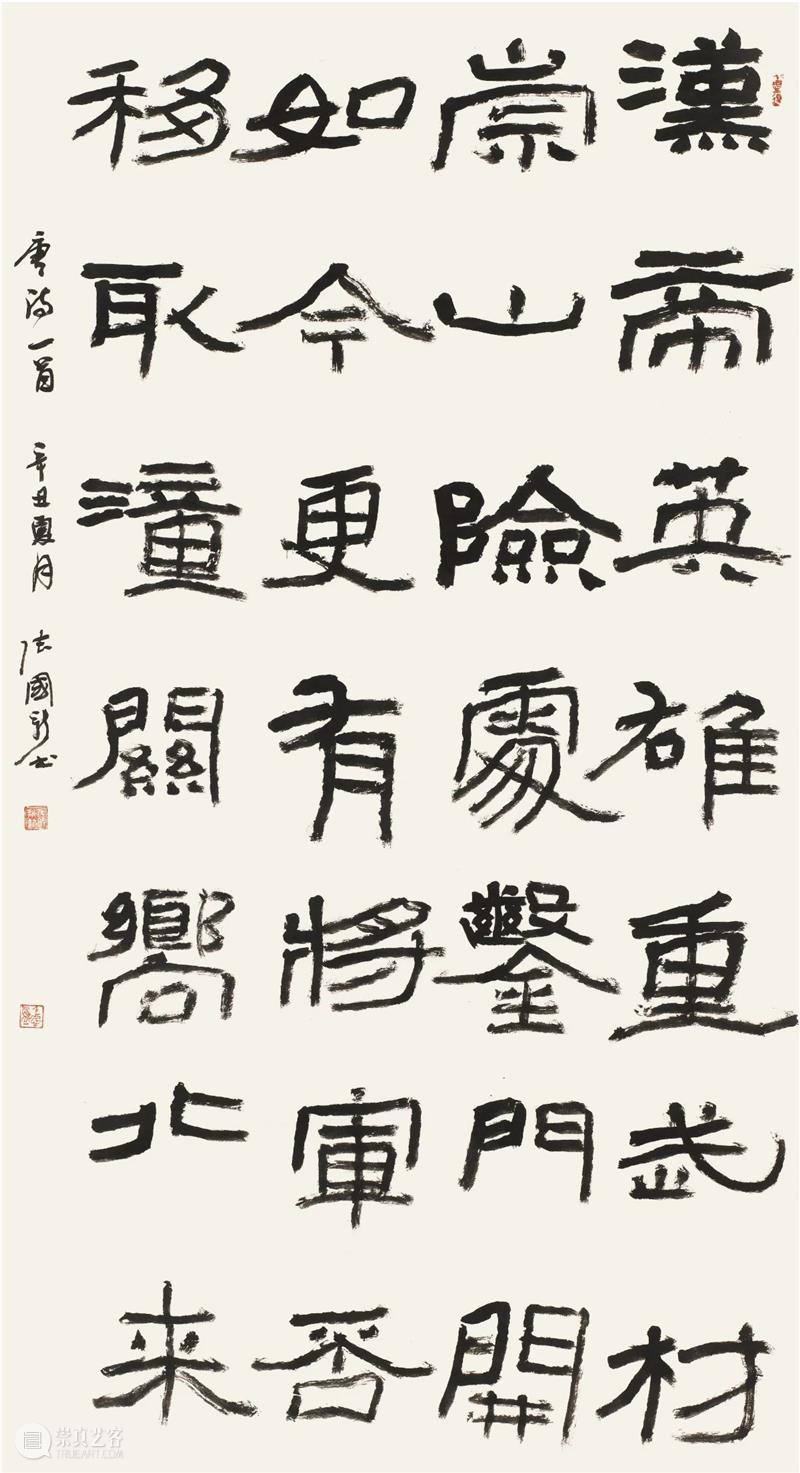 漢帝英雄重武材
崇山險處鑿門開
如今更有將軍否
移取潼關嚮北来
唐詩一首 辛丑夏月 张國新书
崇真艺客
TRUEART.COM